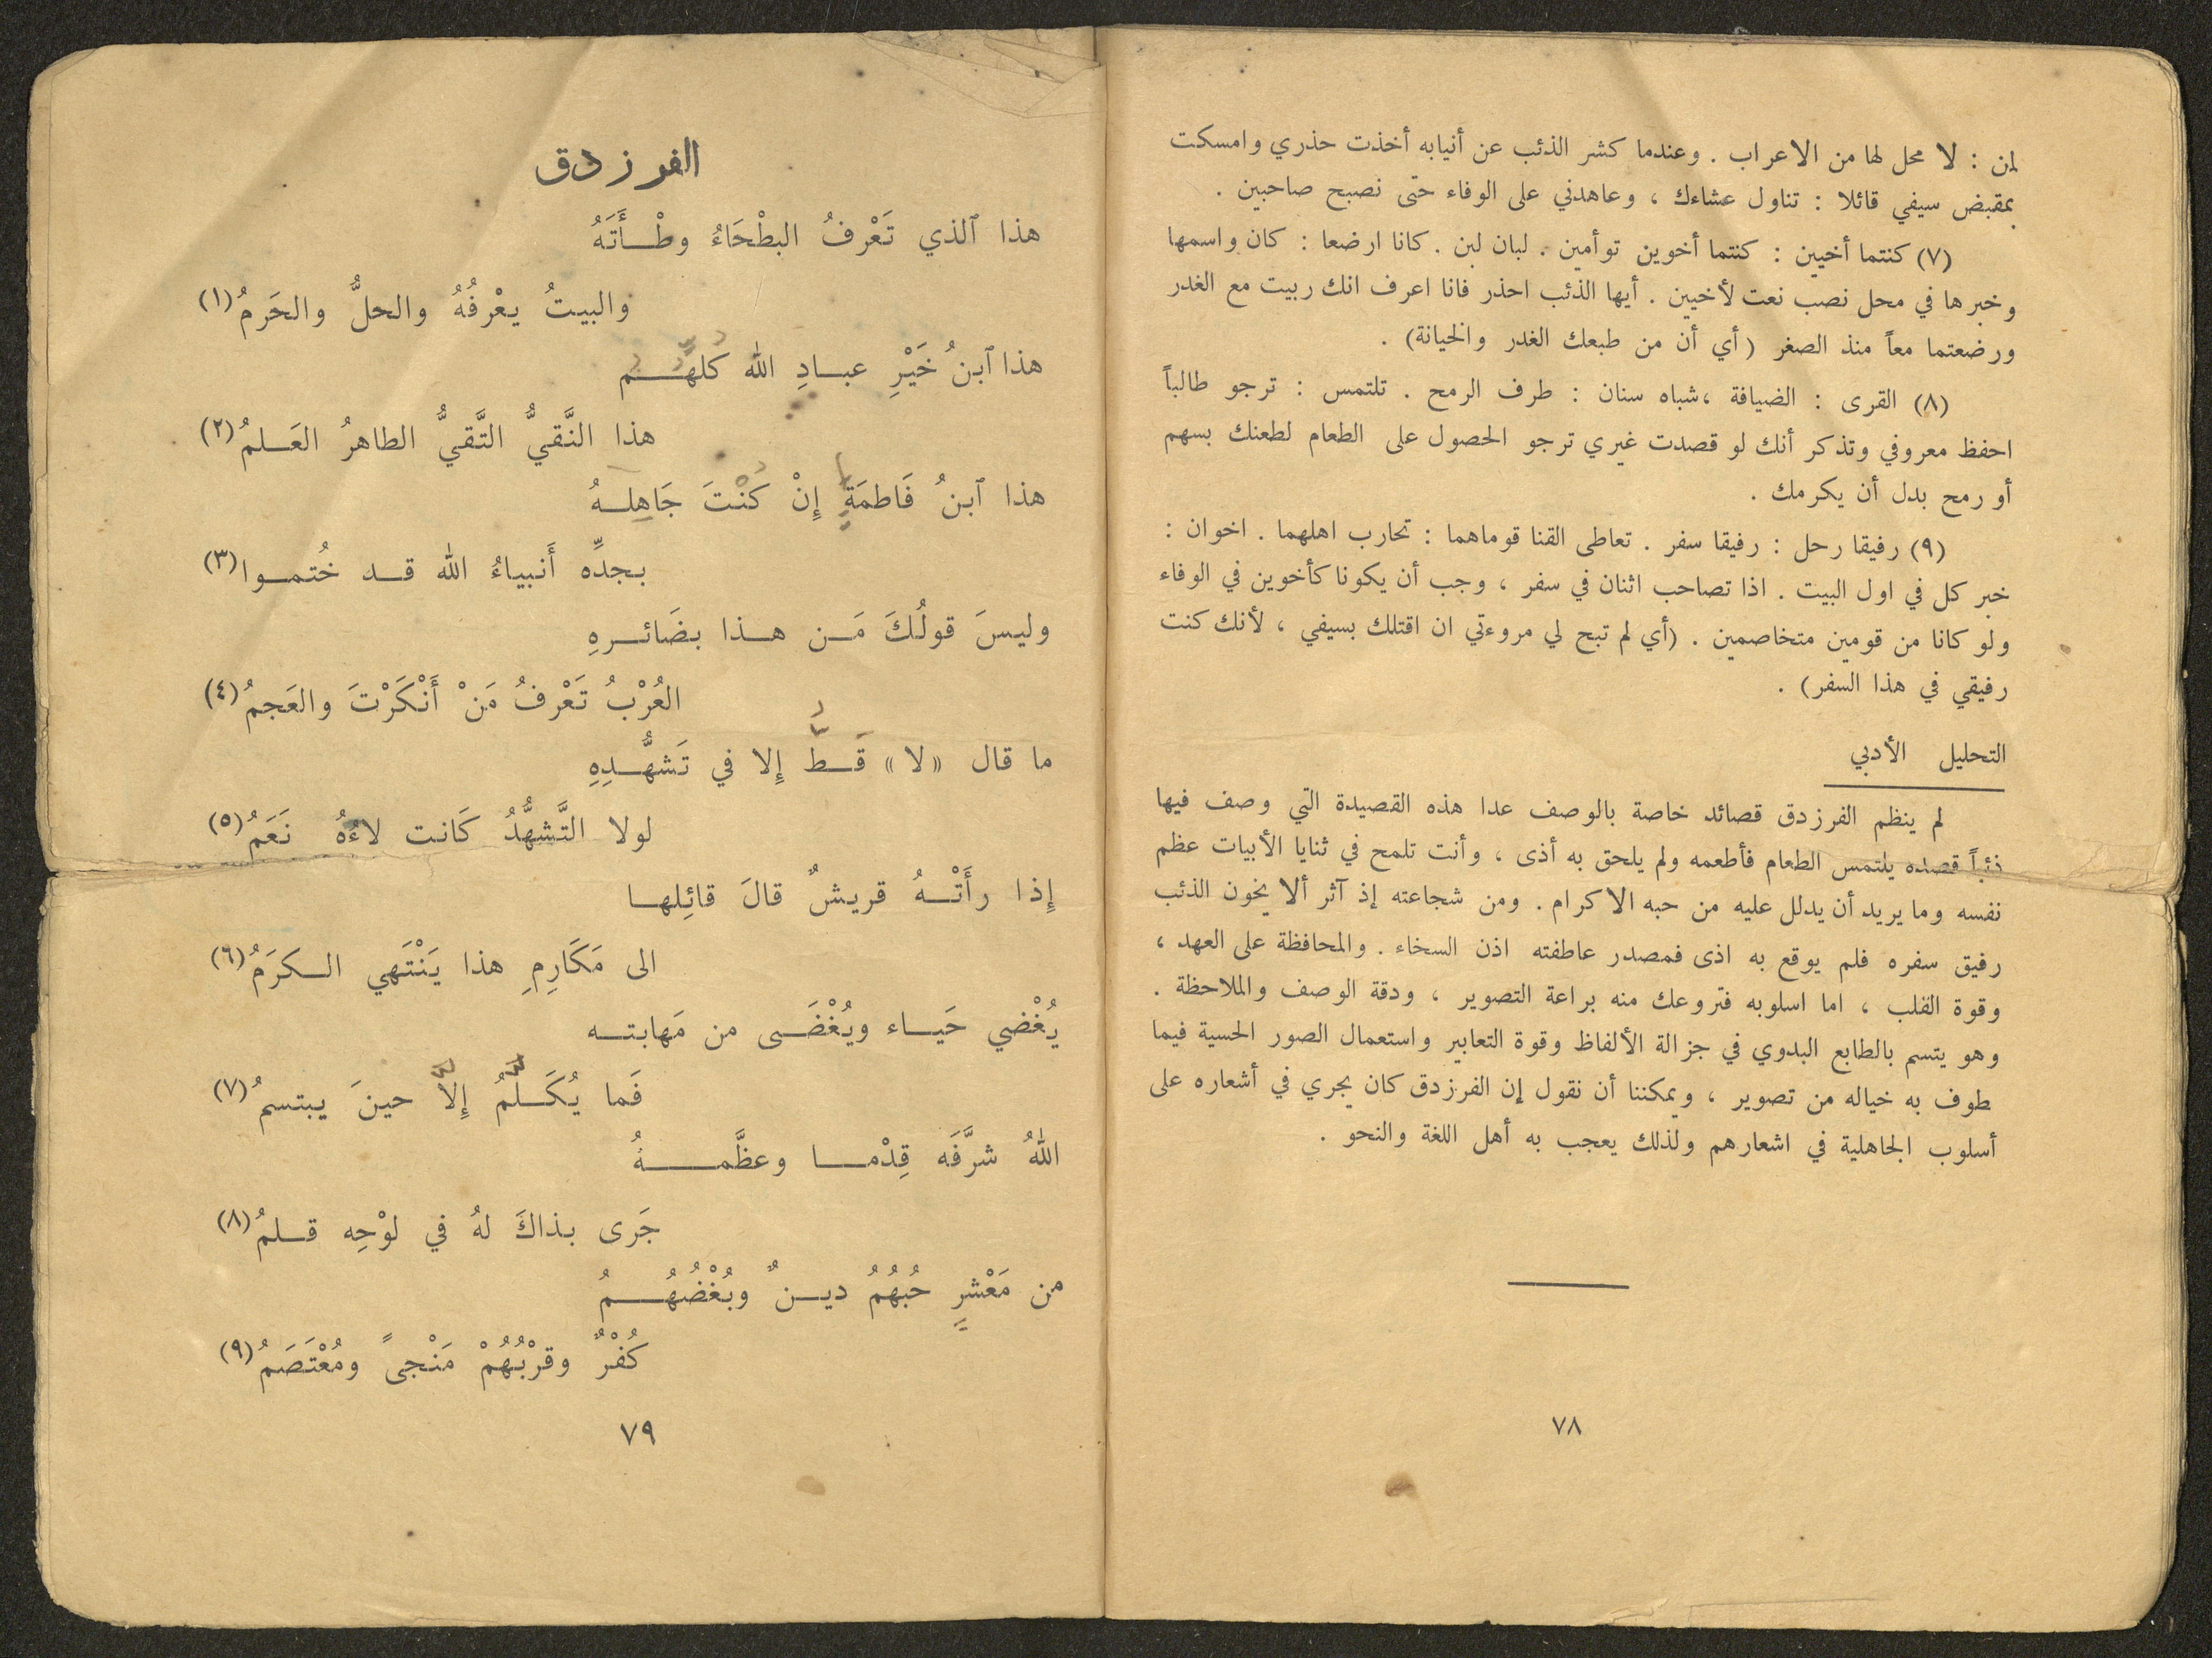 لمن : لا محل لها من الاعراب . وعندما كشر الذئب عن أنيابه أخذت حذري وامسكت
بمقبض سيفي قائلا : تناول عشاءك ، وعاهدني على الوفاء حتى نصبح صاحبين .
(٧) كنتما أخيين : كنتما أخوين توأمين . لبان لبن . كانا ارضعا : كان واسمها
وخبرها في محل نصب نعت لأخيين . أيها الذئب احذر فانا اعرف انك ربيت مع الغدر
ورضعتما معاً منذ الصغر (أي أن من طبعك الغدر والخيانة) .
(٨) القرى : الضيافة ،شباه سنان : طرف الرمح . تلتمس : ترجو طالباً
احفظ معروفي وتذكر أنك لو قصدت غيري ترجو الحصول على الطعام لطعنك بسهم
أو رمح بدل أن يكرمك .
(٩) رفيقا رحل : رفيقا سفر . تعاطى القنا قوماهما : تحارب اهلهما . اخوان :
خبر كل في اول البيت . اذا تصاحب اثنان في سفر ، وجب أن يكونا كأخوين في الوفاء
ولو كانا من قومين متخاصمين . (أي لم تبح لي مروءتي ان اقتلك بسيفي ، لأنك كنت
رفيقي في هذا السفر) .
التحليل الأدبي
لم ينظم الفرزدق قصائد خاصة بالوصف عدا هذه القصيدة التي وصف فيها
ذئباً قصده يلتمس الطعام فأطعمه ولم يلحق به أذى ، وأنت تلمح في ثنايا الأبيات عظم
نفسه وما يريد أن يدلل عليه من حبه الاكرام . ومن شجاعته إذ آثر ألا يخون الذئب
رفيق سفره فلم يوقع به اذى فمصدر عاطفته اذن السخاء . والمحافظة على العهد ،
وقوة القلب ، اما اسلوبه فتروعك منه براعة التصوير ، ودقة الوصف والملاحظة .
وهو يتسم بالطابع البدوي في جزالة الألفاظ وقوة التعابير واستعمال الصور الحسية فيما
طوف به خياله من تصوير ، ويمكننا أن نقول إن الفرزدق كان يجري في أشعاره على
أسلوب الجاهلية في اشعارهم ولذلك يعجب به أهل اللغة والنحو .
٧٨
الفرزدق
هذا ٱلذي تَعْرفُ البطْحَاءُ وطْـأَتَهُ
والبيتُ يعْرفُهُ والحلُّ والحَرمُ(١)
هذا ٱبنُ خَيْرِ عبـادِ الله كُلهِّـم
هذا النَّقيُّ التَّقيُّ الطاهرُ العَـلمُ(٢)
هذا ٱبنُ فَاطمَةٍ إِنْ كُنْتَ جَاهِلـهُ
بجدِّه أَنبياءُ الله قـد خُتمـوا(٣)
وليسَ قولُكَ مَـن هـذا بضَائـرهِ
العُرْبُ تَعْرفُ مَنْ أَنْكَرْتَ والعَجمُ(٤)
ما قال «لا» قَـطُّ إِلا في تَشهُّـدِهِ
لولا التَّشهُّدُ كَانت لاءُهُ نَعَمُ(٥)
إِذا رأَتْـهُ قريشٌ قالَ قائِلهـا
الى مَكَارِمِ هذا يَنْتَهي الـكرَمُ(٦)
يُغْضي حَيـاء ويُغْضَـى من مَهابتـه
فَما يُكَـلَّمُ إِلاَّ حينَ يبتسمُ(٧)
اللهُ شرَّفَه قِدْمـا وعظَّمـهُ
جَرى بذاكَ لهُ في لوْحِه قـلمُ(٨)
من مَعْشرٍ حُبُهُمُ ديـنٌ وبُغْضُهُـمُ
كُفْرٌ وقرْبُهُمْ مَنْجىً ومُعْتَصَمُ(٩)
٧٩